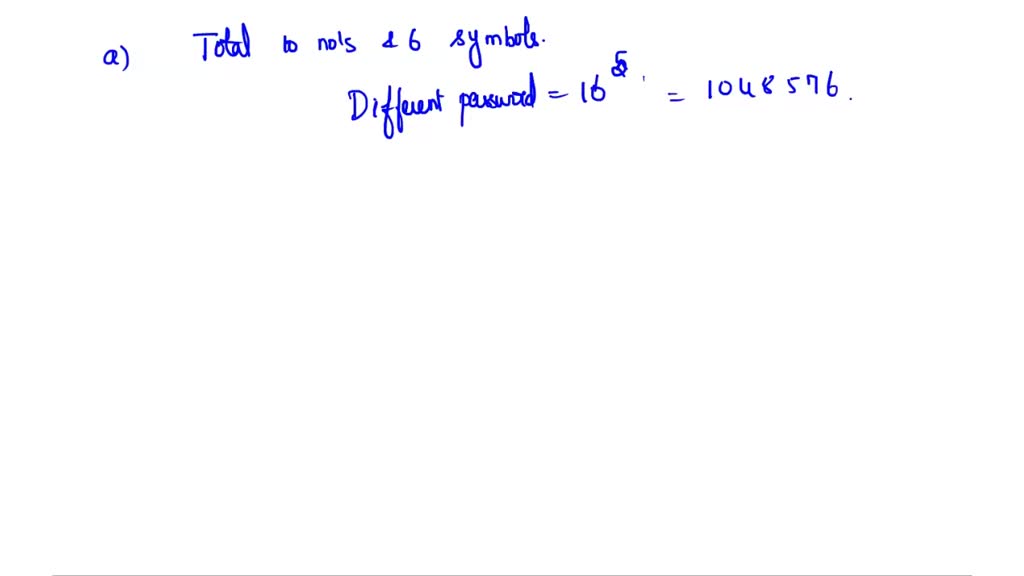 a) Total to no's & 6 symbols.
Different password = 16^5 = 1048576.